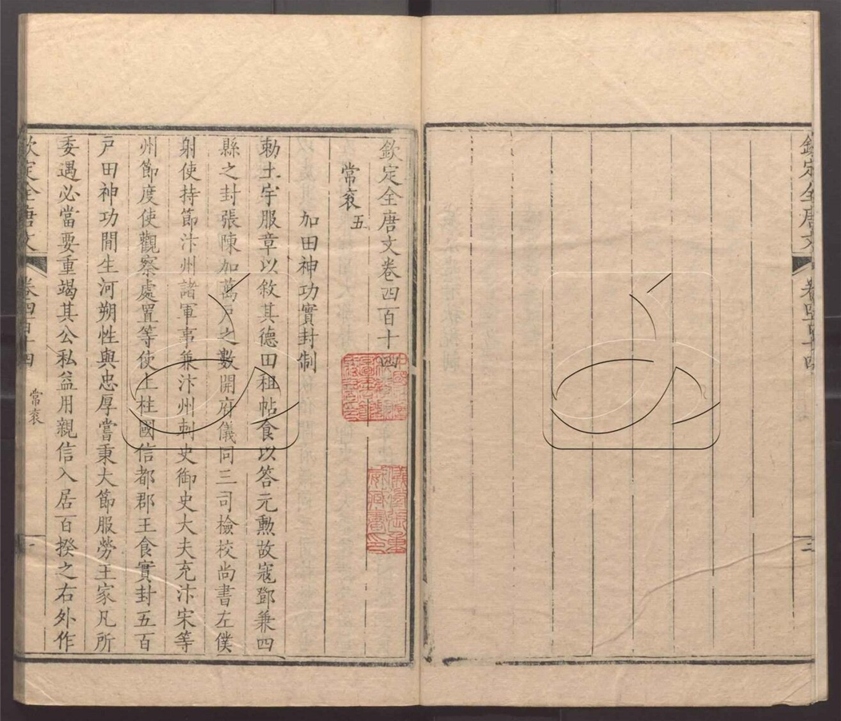 欽定全唐文
欽定全唐文卷四百十四
常衮五
加田神功實封制
勅土宇服章以敘其德田租帖食以答元勲故寇鄧兼四
縣之封張陳加萬戸之數開府儀同三司檢校尚書左僕
射使持節汴州諸軍事兼汴州刺史御史大夫充汴宋等
州節度使觀察處置等使上柱國信都郡王食實封五百
戸田神功閒生河朔性與忠厚嘗秉大節服勞王家凡所
委遇必當要重竭其公私益用親信入居百揆之右外作
欽定全唐文
卷四百十四
常衮
一